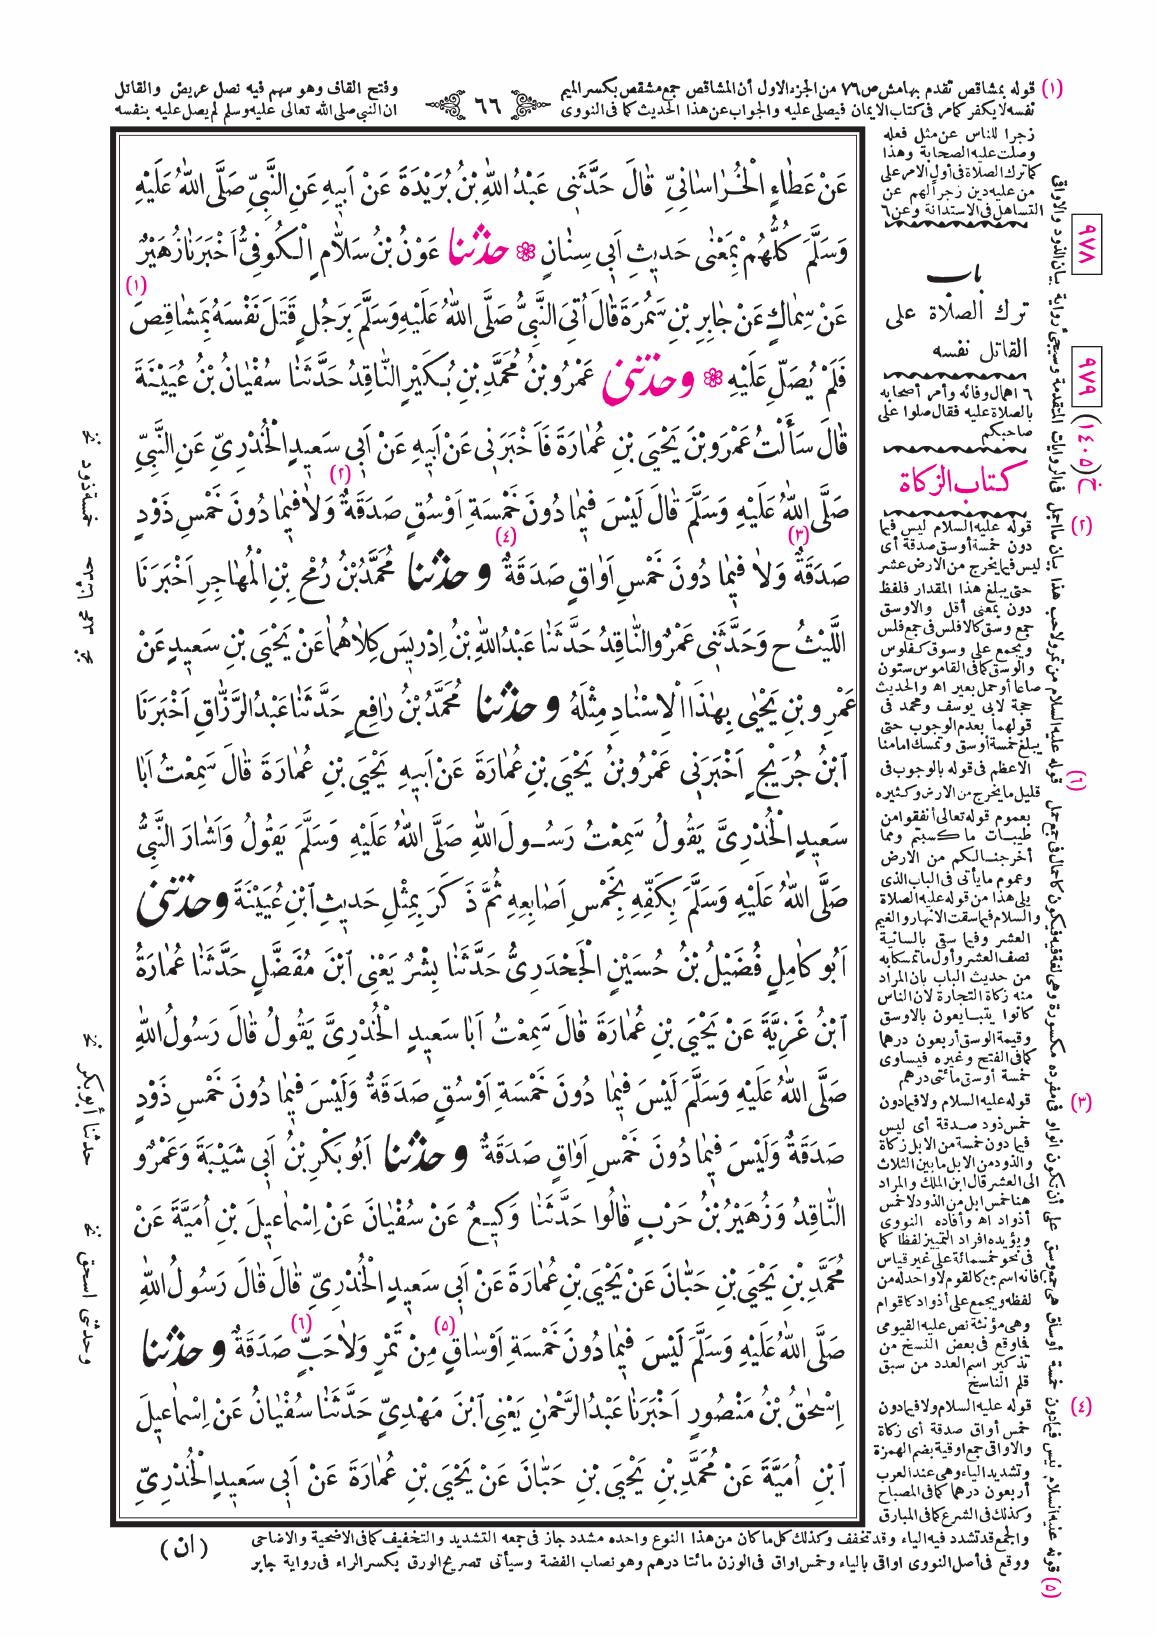 (١) قوله بمشاقص تقدم بهامش ص٧٦ من الجزء الاول أن المشاقص جمع مشقص بكسر الميم
وفتح القاف وهو سهم فيه نصل عريض والقاتل
٦٦
نفسه لا يكفر كما مر فى كتاب الايمان فيصلى عليه والجواب عن هذا الحديث كما فى النووى
ان النبى صلى الله تعالى عليه وسلم لم يصل عليه بنفسه
زجرا للناس عن مثل فعله
وصلت عليه الصحابة وهذا
كما ترك الصلاة فى أول الامر على
من عليه دين زجرا لهم عن
التساهل فى الاستدانة وعن ٦
باب
ترك الصلاة على
القاتل نفسه
٦ اهمال وفائه وأمر أصحابه
بالصلاة عليه فقال صلوا على
صاحبكم
كتاب الزكاة
٩٧٨
٩٧٩
خ(١٤٠٥)
عَنْ عَطَاءٍ الْخُرَاسَانِيِّ قَالَ حَدَّثَنِى عَبْدُ اللهِ بْنُ بُرَيْدَةَ عَنْ أَبِيهِ عَنِ النَّبِيِّ صَلَّى اللهُ عَلَيْهِ
وَسَلَّمَ كُلُّهُمْ بِمَعْنَى حَدِيثِ أَبِى سِنَانٍ ۞ حدثنا عَوْنُ بْنُ سَلَّامٍ الْكُوفِيُّ أَخْبَرَنَا زُهَيْرٌ
(١)
عَنْ سِمَاكٍ عَنْ جَابِرِ بْنِ سَمُرَةَ قَالَ أُتِىَ النَّبِيُّ صَلَّى اللهُ عَلَيْهِ وَسَلَّمَ بِرَجُلٍ قَتَلَ نَفْسَهُ بِمَشَاقِصَ
فَلَمْ يُصَلِّ عَلَيْهِ ۞ وحدثنى عَمْرُو بْنُ مُحَمَّدِ بْنِ بُكَيْرٍ النَّاقِدُ حَدَّثَنَا سُفْيَانُ بْنُ عُيَيْنَةَ
قَالَ سَأَلْتُ عَمْرَو بْنَ يَحْيَى بْنِ عُمَارَةَ فَأَخْبَرَنِى عَنْ أَبِيهِ عَنْ أَبِى سَعِيدٍ الْخُدْرِيِّ عَنِ النَّبِيِّ
(٢)
صَلَّى اللهُ عَلَيْهِ وَسَلَّمَ قَالَ لَيْسَ فِيمَا دُونَ خَمْسَةِ أَوْسُقٍ صَدَقَةٌ وَلَا فِيمَا دُونَ خَمْسِ ذَوْدٍ
(٣) (٤)
صَدَقَةٌ وَلَا فِيمَا دُونَ خَمْسِ أَوَاقٍ صَدَقَةٌ وحدثنا مُحَمَّدُ بْنُ رُمْحِ بْنِ الْمُهَاجِرِ أَخْبَرَنَا
اللَّيْثُ ح وَحَدَّثَنِى عَمْرٌو النَّاقِدُ حَدَّثَنَا عَبْدُ اللهِ بْنُ إِدْرِيسَ كِلَاهُمَا عَنْ يَحْيَى بْنِ سَعِيدٍ عَنْ
عَمْرِو بْنِ يَحْيَى بِهٰذَا الْإِسْنَادِ مِثْلَهُ وحدثنا مُحَمَّدُ بْنُ رَافِعٍ حَدَّثَنَا عَبْدُ الرَّزَّاقِ أَخْبَرَنَا
ابْنُ جُرَيْجٍ أَخْبَرَنِى عَمْرُو بْنُ يَحْيَى بْنِ عُمَارَةَ عَنْ أَبِيهِ يَحْيَى بْنِ عُمَارَةَ قَالَ سَمِعْتُ أَبَا
سَعِيدٍ الْخُدْرِيَّ يَقُولُ سَمِعْتُ رَسُولَ اللهِ صَلَّى اللهُ عَلَيْهِ وَسَلَّمَ يَقُولُ وَأَشَارَ النَّبِيُّ
صَلَّى اللهُ عَلَيْهِ وَسَلَّمَ بِكَفِّهِ بِخَمْسِ أَصَابِعِهِ ثُمَّ ذَكَرَ بِمِثْلِ حَدِيثِ ابْنِ عُيَيْنَةَ وحدثنى
أَبُو كَامِلٍ فُضَيْلُ بْنُ حُسَيْنٍ الْجَحْدَرِيُّ حَدَّثَنَا بِشْرٌ يَعْنِى ابْنَ مُفَضَّلٍ حَدَّثَنَا عُمَارَةُ
ابْنُ غَزِيَّةَ عَنْ يَحْيَى بْنِ عُمَارَةَ قَالَ سَمِعْتُ أَبَا سَعِيدٍ الْخُدْرِيَّ يَقُولُ قَالَ رَسُولُ اللهِ
صَلَّى اللهُ عَلَيْهِ وَسَلَّمَ لَيْسَ فِيمَا دُونَ خَمْسَةِ أَوْسُقٍ صَدَقَةٌ وَلَيْسَ فِيمَا دُونَ خَمْسِ ذَوْدٍ
صَدَقَةٌ وَلَيْسَ فِيمَا دُونَ خَمْسِ أَوَاقٍ صَدَقَةٌ وحدثنا أَبُو بَكْرِ بْنُ أَبِى شَيْبَةَ وَعَمْرٌو
النَّاقِدُ وَزُهَيْرُ بْنُ حَرْبٍ قَالُوا حَدَّثَنَا وَكِيعٌ عَنْ سُفْيَانَ عَنْ إِسْمَاعِيلَ بْنِ أُمَيَّةَ عَنْ
مُحَمَّدِ بْنِ يَحْيَى بْنِ حَبَّانَ عَنْ يَحْيَى بْنِ عُمَارَةَ عَنْ أَبِى سَعِيدٍ الْخُدْرِيِّ قَالَ قَالَ رَسُولُ اللهِ
(٥) (٦)
صَلَّى اللهُ عَلَيْهِ وَسَلَّمَ لَيْسَ فِيمَا دُونَ خَمْسَةِ أَوْسَاقٍ مِنْ تَمْرٍ وَلَا حَبٍّ صَدَقَةٌ وحدثنا
إِسْحٰقُ بْنُ مَنْصُورٍ أَخْبَرَنَا عَبْدُ الرَّحْمٰنِ يَعْنِى ابْنَ مَهْدِيٍّ حَدَّثَنَا سُفْيَانُ عَنْ إِسْمَاعِيلَ
ابْنِ أُمَيَّةَ عَنْ مُحَمَّدِ بْنِ يَحْيَى بْنِ حَبَّانَ عَنْ يَحْيَى بْنِ عُمَارَةَ عَنْ أَبِى سَعِيدٍ الْخُدْرِيِّ
(٢) قوله عليه السلام ليس فيما
دون خمسة أوسق صدقة أى
ليس فيما يخرج من الارض عشر
حتى يبلغ هذا المقدار فلفظ
دون بمعنى أقل والاوسق
جمع وسق كالافلس فى جمع فلس
ويجمع على وسوق كفلوس
والوسق كما فى القاموس ستون
صاعا أو حمل بعير اه والحديث
حجة لابى يوسف ومحمد فى
قولهما بعدم الوجوب حتى
يبلغ خمسة أوسق وتمسك امامنا
الاعظم فى قوله بالوجوب فى
قليل ما يخرج من الارض وكثيره
بعموم قوله تعالى أنفقوا من
طيبات ما كسبتم ومما
أخرجنا لكم من الارض
وعموم ما يأتى فى الباب الذى
يلى هذا من قوله عليه الصلاة
والسلام فيما سقت الانهار والغيم
العشر وفيما سقى بالسانية
نصف العشر وأول ما تمسكا به
من حديث الباب بان المراد
منه زكاة التجارة لان الناس
كانوا يتبايعون بالاوسق
وقيمة الوسق أربعون درهما
كما فى الفتح وغيره فيساوى
خمسة أوسق مائتى درهم
(٣) قوله عليه السلام ولا فيما دون
خمس ذود صدقة أى ليس
فيما دون خمسة من الابل زكاة
والذود من الابل ما بين الثلاث
الى العشر قال ابن الملك والمراد
هنا خمس ابل من الذود لا خمس
أذواد اه وأفاده النووى
ويؤيده افراد التمييز لفظا كما
فى نحو خمسمائة على غير قياس
فانه اسم جمع كالقوم لا واحد له من
لفظه ويجمع على أذواد كاقوام
وهى مؤنثة نص عليه الفيومى
فما وقع فى بعض النسخ من
تذكير اسم العدد من سبق
قلم الناسخ
(٤) قوله عليه السلام ولا فيما دون
خمس أواق صدقة أى زكاة
والاواقى جمع اوقية بضم الهمزة
وتشديد الياء وهى عند العرب
أربعون درهما كما فى المصباح
وكذلك فى الشرع كما فى المبارق
والجمع قد تشدد فيه الياء وقد تخفف وكذلك كل ما كان من هذا النوع واحده مشدد جاز فى جمعه التشديد والتخفيف كما فى الاضحية والاضاحى
ووقع فى أصل النووى اواقى بالياء وخمس اواق فى الوزن مائتا درهم وهو نصاب الفضة وسيأتى تصريح الورق بكسر الراء فى رواية جابر
( ان )
(٥) قوله عليه السلام ليس فيما دون خمسة أوساق هى جمع وسق
(٦) قوله عليه السلام من تمر ولا حب
بيان الذود والاواق
خمسة ذود
حدثنا أبوبكر
وحدثنى اسحق